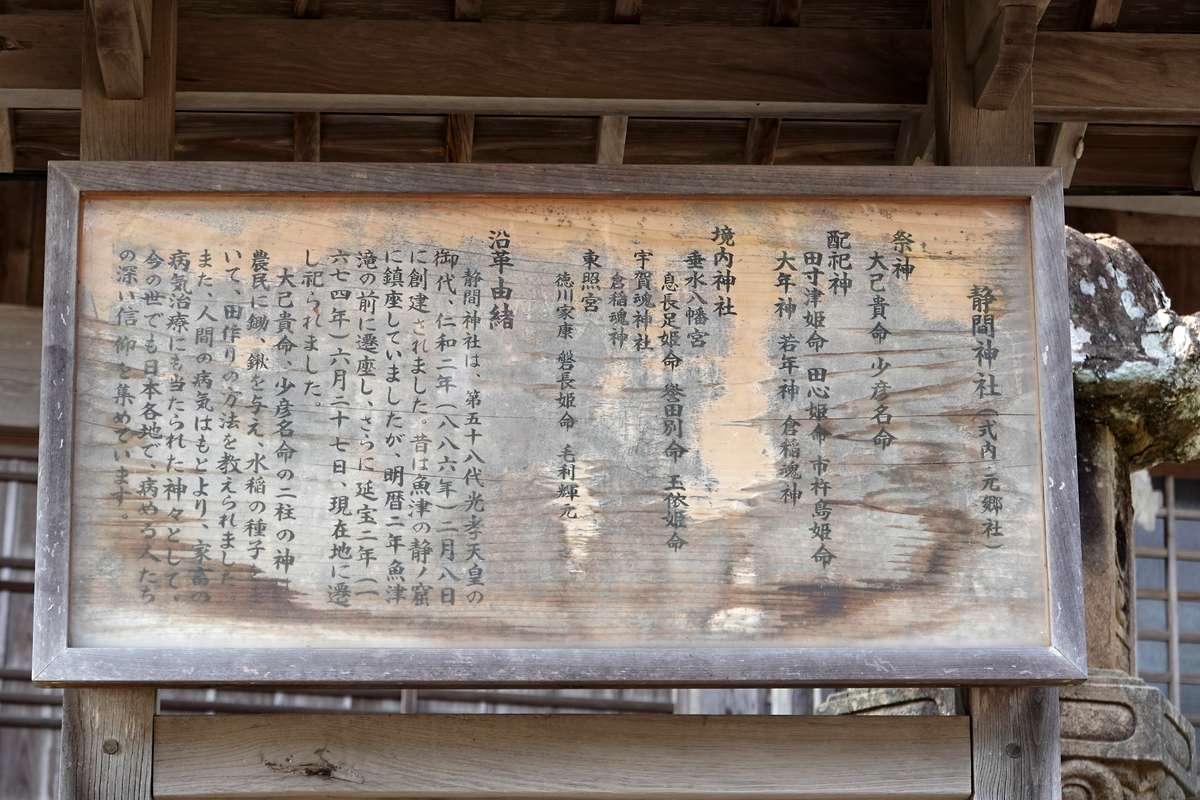 静間神社(式内 元郷社)
祭神
大己貴命 少彦名命
配祀神
田寸津姫命 田心姫命 市杵島姫命
大年神 若年神 倉稲魂神
境内神社
垂水八幡宮
息長足姫命 誉田別命 玉依姫命
宇賀魂神社
倉稲魂神
東照宮
徳川家康 磐長姫命 毛利輝元
沿革由緒
静間神社は、第五十八代光孝天皇の
御代、仁和二年(八八六年)二月八日
に創建されました。昔は魚津の静ノ窟
に鎮座していましたが、明暦二年魚津
滝の前に遷座し、さらに延宝二年(一
六七四年)六月二十七日、現在地に遷
し祀られました。
大己貴命、少彦名命の二柱の神は
農民に鋤、鍬を与え、水稲の種子を
いて、田作りの方法を教えられました
また、人間の病気はもとより、家畜の
病気治療にも当たられた神々として、
今の世でも日本各地で、病める人たち
の深い信仰を集めています。